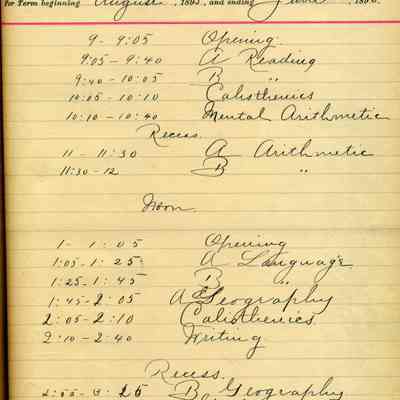 for Term beginning August, 1895, and ending June, 1896.
9 - 9:05 Opening
9:05 - 9:40 A Reading
9:40 - 10:05 B "
10:05 - 10:10 Calisthenics
10:10 - 10:40 Mental Arithmetic
Recess.
11 - 11:30 A Arithmetic
11:30 - 12 B "
Noon.
1 - 1:05 Opening
1:05 - 1:25 A Language
1:25 - 1:45 B "
1:45 - 2:05 A Geography
2:05 - 2:10 Calisthenics
2:10 - 2:40 Writing
Recess.
2:55 - 3:25 B Geography